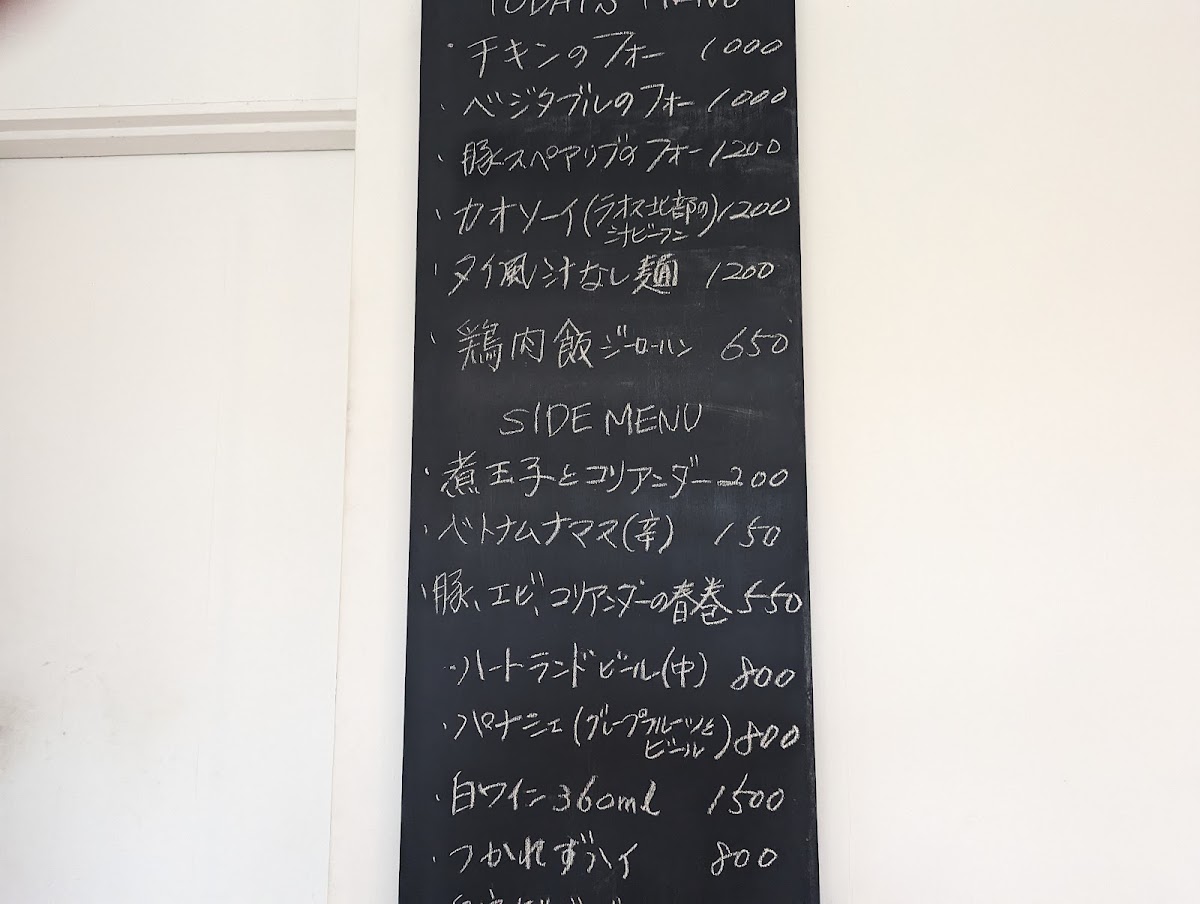 TODAY'S MENU
・チキンのフォー 1000
・ベジタブルのフォー 1000
・豚スペアリブのフォー 1200
・カオソーイ(ラオス北部の汁ビーフン) 1200
・タイ風汁なし麺 1200
・鶏肉飯 ジーローハン 650
SIDE MENU
・煮玉子とコリアンダー 200
・ベトナムナマス(辛) 150
・豚、エビ、コリアンダーの春巻 550
・ハートランドビール(中) 800
・パナシェ(グレープフルーツとビール) 800
・白ワイン 360ml 1500
・つかれずハイ 800